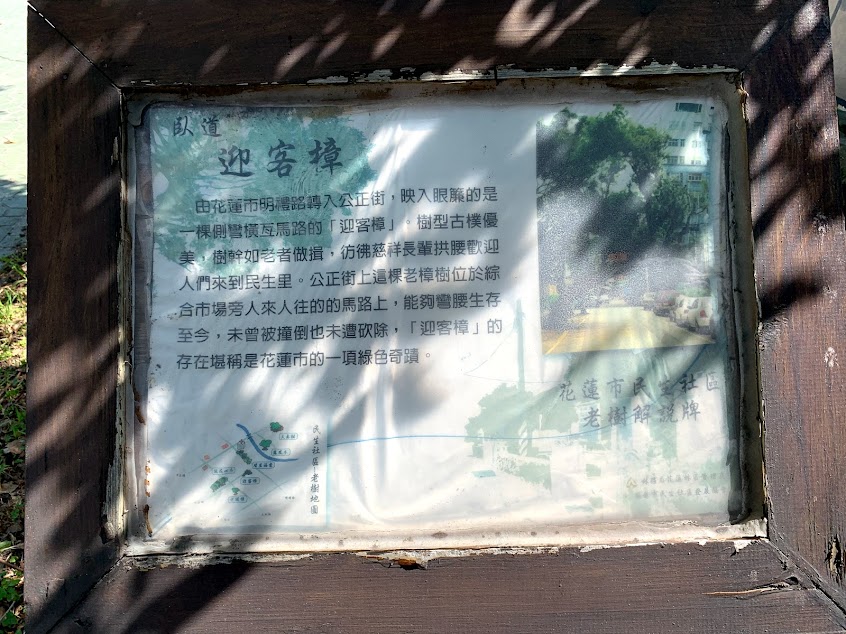 臥道
迎客樟
由花蓮市明禮路轉入公正街，映入眼簾的是
一棵側彎橫亙馬路的「迎客樟」。樹型古樸優
美，樹幹如老者做揖，彷彿慈祥長輩拱腰歡迎
人們來到民生里。公正街上這棵老樟樹位於綜
合市場旁人來人往的的馬路上，能夠彎腰生存
至今，未曾被撞倒也未遭砍除，「迎客樟」的
存在堪稱是花蓮市的一項綠色奇蹟。
花蓮市民生社區
老樹解說牌
民生社區-老樹地圖